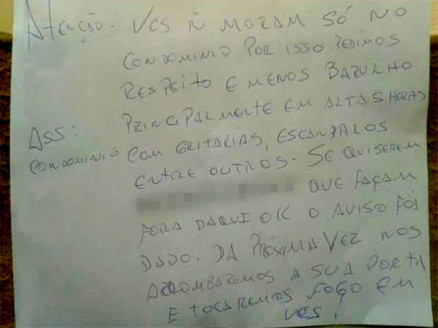 Atenção: VCS Ñ MORAM SÓ NO
CONDOMINIO POR ISSO PEDIMOS
RESPEITO E MENOS BARULHO
PRINCIPALMENTE EM ALTAS HORAS
ASS:
CONDOMINIO
COM GRITARIAS, ESCANDALOS
ENTRE OUTROS. SE QUISEREM
QUE FAÇAM
FORA DAQUI OK O AVISO FOI
DADO. DA PRÓXIMA VEZ NOS
ARROMBAREMOS A SUA PORTA
E TOCAREMOS FOGO EM
VCS!